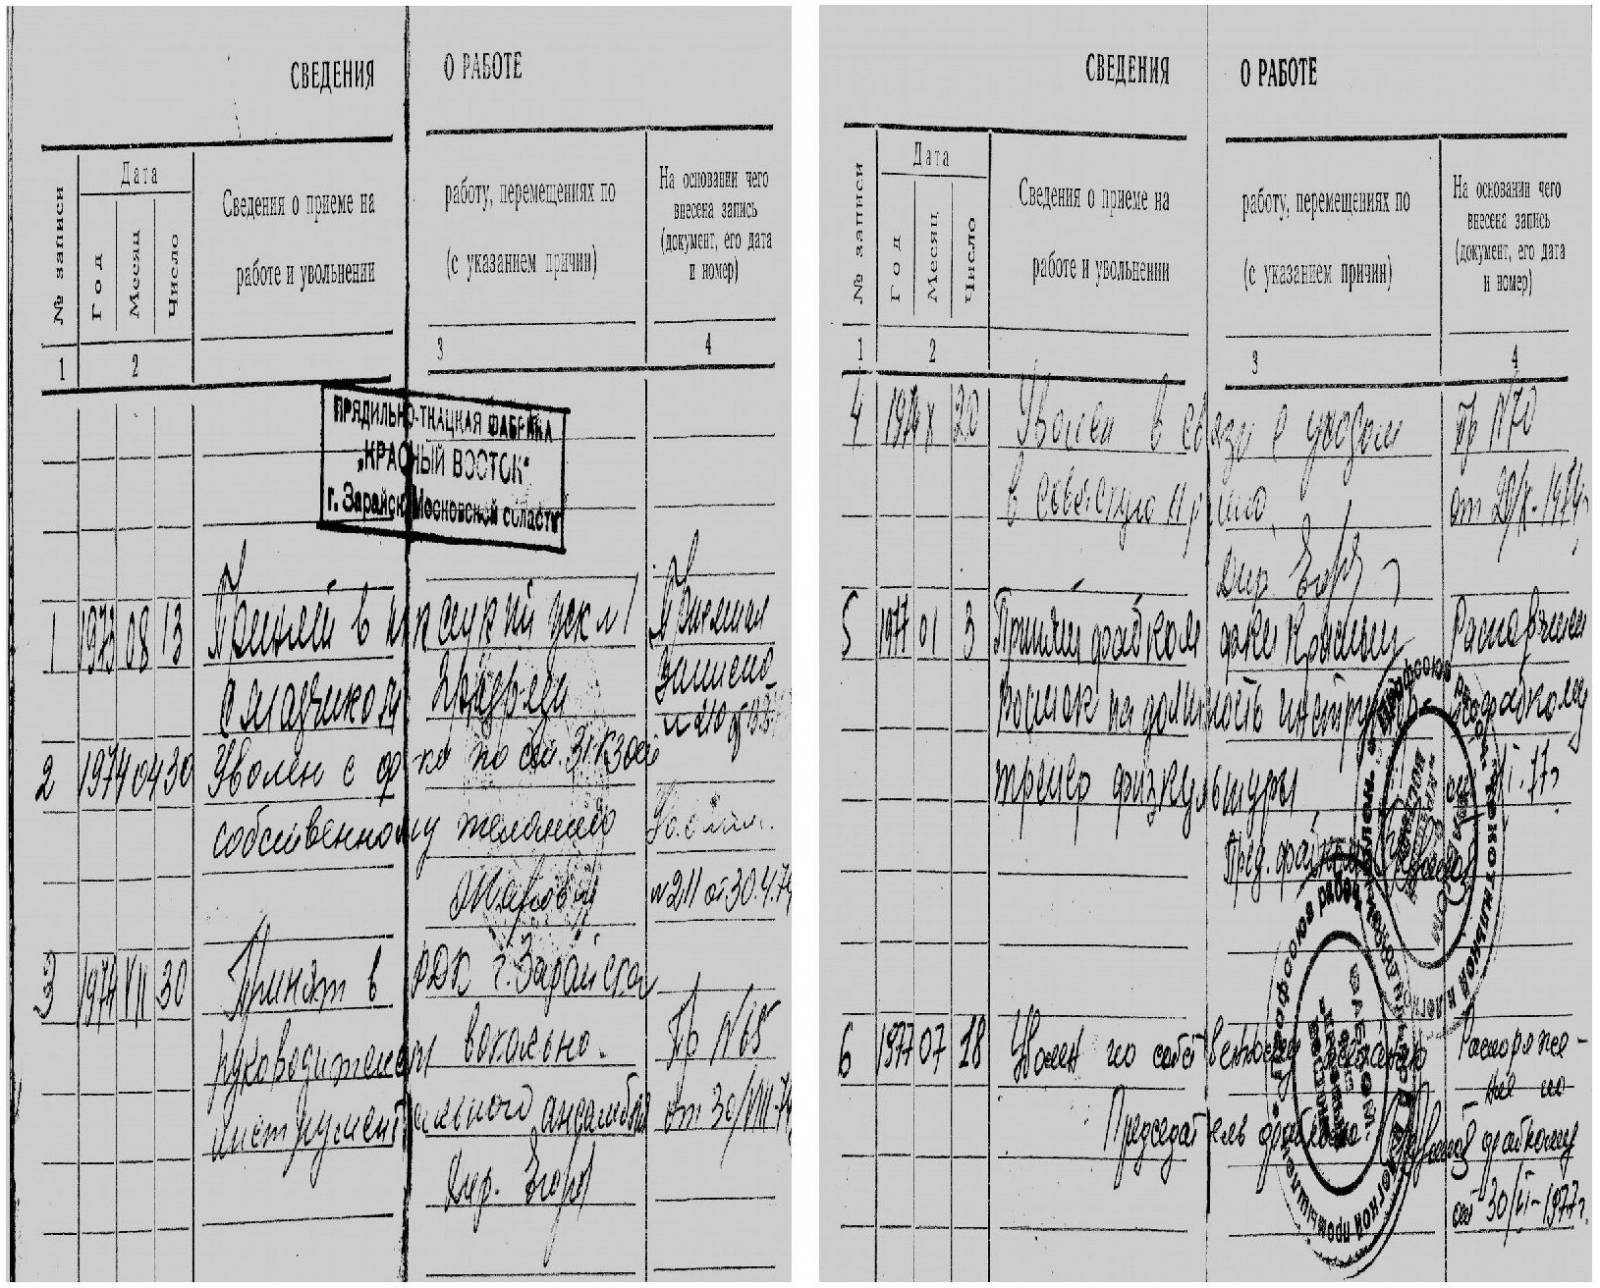 СВЕДЕНИЯ О РАБОТЕ
№ записи
Дата
Год
Месяц
Число
Сведения о приеме на работу, перемещениях по
работе и увольнении (с указанием причин)
На основании чего
внесена запись
(документ, его дата
и номер)
1 2 3 4
ПРЯДИЛЬНО-ТКАЦКАЯ ФАБРИКА
„КРАСНЫЙ ВОСТОК"
г. Зарайск Московской области
1 1973 08 13 Принят в ткацкий цех №1
2 1974 04 30 Уволен с ф-ки по ст. 31 КЗОТ
собственному желанию
№211 от 30.4.74
3 1974 VII 30 Принят в РДК г. Зарайска
руководителем вокально- Пр №65
инструментального ансамбля от 30/VIII-74
Дир.
СВЕДЕНИЯ О РАБОТЕ
№ записи
Дата
Год
Месяц
Число
Сведения о приеме на работу, перемещениях по
работе и увольнении (с указанием причин)
На основании чего
внесена запись
(документ, его дата
и номер)
1 2 3 4
4 1974 X 20 Уволен в связи с уходом Пр №70
в Советскую Армию от 20/X-1974г
Дир.
5 1977 01 3 Принят фабком ф-ки Красный
Восток на должность инструк
тренер физкультуры
Пред. фабкома
6 1977 07 18 Уволен по собственному желанию Распоряже-
ние по
Председатель фабкома фабкому
от 30/VI-1977г.